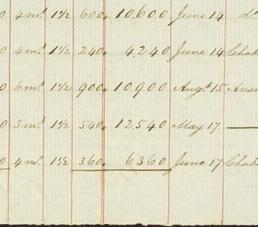 0 4 m.s 1 1/2 600. 10,600 June 14 do
0 4 m.s 1 1/2 240. 4,240 June 14
0 6 m.s 1 1/2 900. 10,900 Aug. 15
0 3 m.s 1 1/2 540. 12,540 May 17.
0 4 m.s 1 1/2 360. 6360 June 17